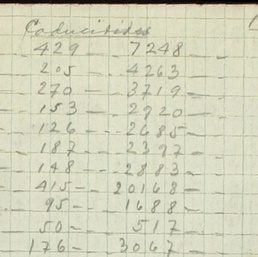 Caducitides
429 — 7248 —
205 — 4263 —
270 — 3719 —
153 — 2920 —
126 — 2685 —
187 — 2397 —
148 — 2883 —
415 — 20168 —
95 — 1688 —
50 — 517 —
176 — 3067 —